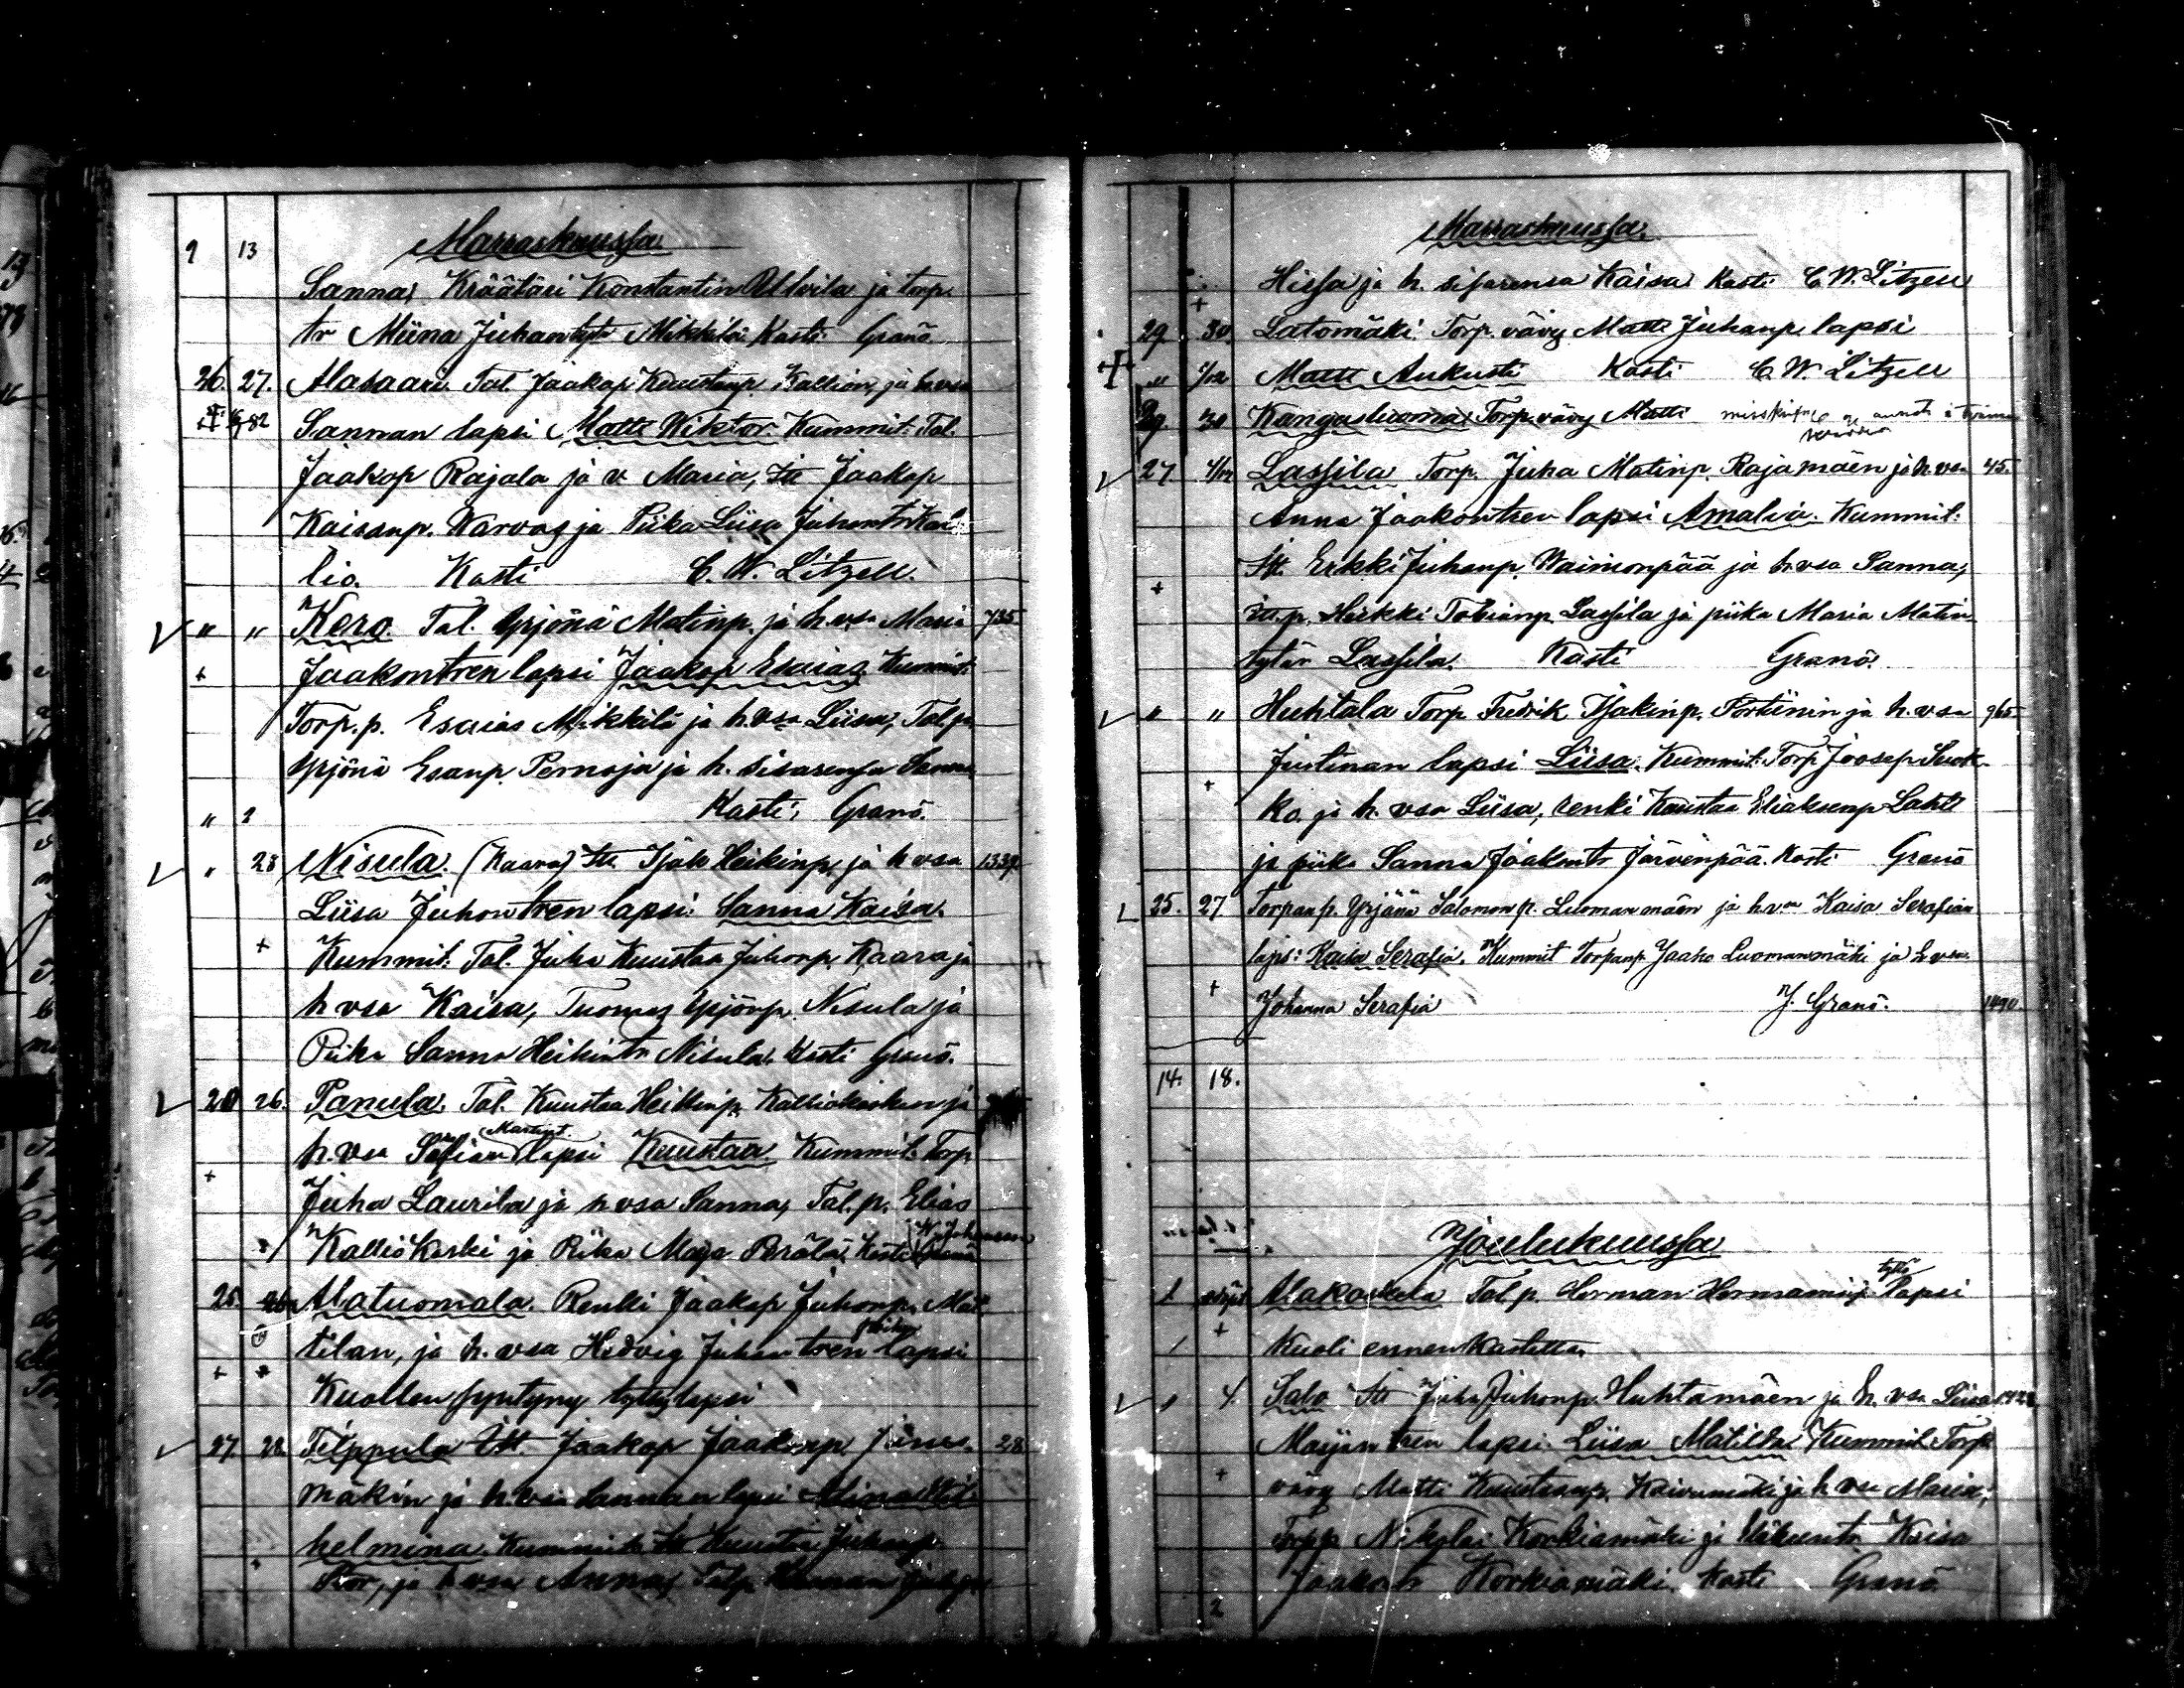 9 13 Marraskuussa
Sanna, Kräätäri Konstantin ja torp.
tr Miina Juhantytr Mikkilä Kasti Granö
26. 27. Alasaari. Tal. Jaakop Kuustanp. Kallion, ja h. vsa
Sannan lapsi Matts Wiktor. Kummit: Tal.
Jaakop Rajala ja v. Maria, Itt Jaakop
Kaisanp. Warvas ja Piika Liisa Juhontr Kal-
lio. Kasti C. W. Litzell.
" " Kero. Tal. Yrjönä Matinp. ja h. vsa Maria 735
Jaakontren lapsi Jaakop Esaias. Kummit:
Torp. p. Esaias Mikkilä ja h. vsa Liisa, Tal. p.
Yrjönä Esanp. Pernaja ja h. sisarensa Sanna
" 2 Kasti; Granö.
" 28 Nisula. (Kaara) Itt Isak Heikinp. ja h vsa 1339.
Liisa Juhontren lapsi: Sanna Kaisa.
Kummit: Tal. Juha Kuustaa Juhonp. Kaara ja
h vsa Kaisa, Tuomas Yrjönp. Nisula ja
Piika Sanna Heikintr Nisula. Kasti Granö.
26. Panula. Tal. Kuustaa Heikkinp. Kalliokosken ja
h. vsa Sofian Martint. lapsi Kuustaa Kummit. Torp
Juha Laurila ja h vsa Sanna, Tal. p. Elias
Kalliokoski ja Piika Maja Perälä. Kasti
25 Alatuomala. Renki Jaakop Juhonp. Mat
tilan, ja h. vsa Hedvig Juhontren lapsi
Kuollen syntyny tyttylapsi
27. 28. Tilppula Itt. Jaakop Jaakonp. 28
mäkin ja h vsa Sannan lapsi
helmina. Kummit. Itt Kuusta Juhanp.
ja h vsa Anna, Talp.
Marraskuussa.
Hissa ja h. sisarensa Kaisa. Kasti C. W. Litzell
29 30. Latomäki. Torp. vävy Matts Juhanp. lapsi
" Matts Aukusti Kasti C. W. Litzell
29. 30 Kangasluoma. Torp. vävy Matti
27 Lassila Torp. Juha Matinp. Rajamäen ja h. vsa 45.
Anna Jaakontren lapsi Amalia. Kummit:
Itt. Erkki Juhanp. Wainionpää ja h. vsa Sanna,
itt. p. Heikki Tobianp. Lassila ja piika Maria Matin
tytär Lassila. Kasti Granö.
" " Huhtala Torp Fredrik Isakinp. Portinin ja h. vsa 965
Justinan lapsi Liisa. Kummit: Torp. Joosep Luok-
ka. ja h. vsa Liisa, renki Kuustaa Eliaksenp Lahti
ja piika Sanna Jaakontr Järvenpää. Kasti Granö
25. 27 Torpan p. Yrjänä Salomon p. Luomanmäen ja h. vsa Kaisa Serafian
laps: Kaisa Serafia. Kummit Torpanp. Jaako Luomanmäki ja h vsa.
Johanna Serafia J. Granö. 1490.
14. 18.
Joulukuussa
1 Alakoskela Tal p. Herman Hermaninp. tyttö lapsi
1 Kuoli ennen kastetta.
" 4. Salo Itt Juha Juhonp. Huhtamäen ja h. vsa Liisa
Maijan tren lapsi. Liisa Matilda Kummit. Torp.
vävy Matti Kuustaanp. Koivumäki ja h vsa Maria,
Torpp Nikolai Korkiamäki ja Kaisa
Jaakontr Korkiamäki. Kasti Granö
2